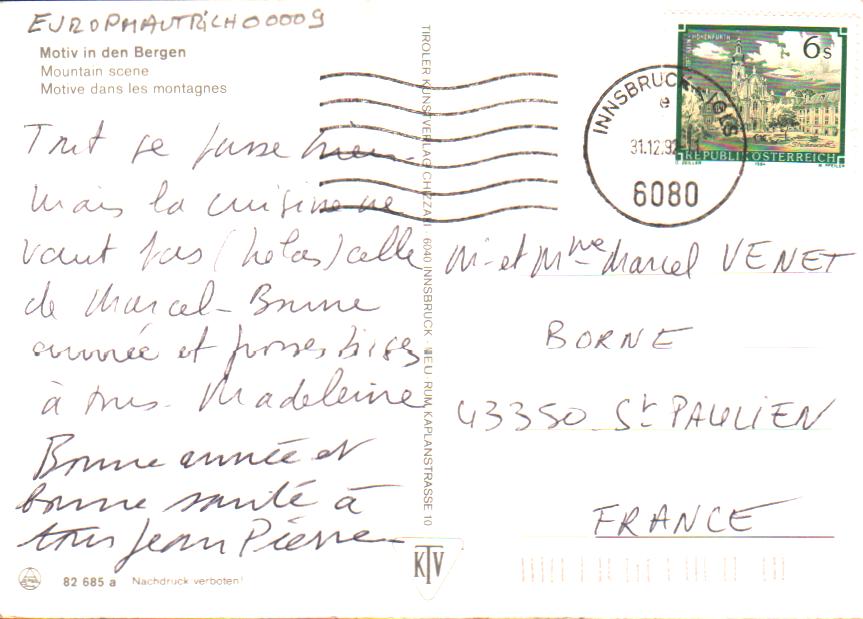 EUROPMAUTRICH00009
Motiv in den Bergen
Mountain scene
Motive dans les montagnes
Tout se passe bien.
mais la cuisine ne
vaut pas (hélas) celle
de Marcel - Bonne
année et grosses bises
à tous. Madeleine
Bonne année et
bonne santé à
tous Jean Pierre
82 685 a Nachdruck verboten!
TIROLER KUNSTVERLAG CHIZZALI · 6040 INNSBRUCK · NEU RUM, KAPLANSTRASSE 10
KTV
6s
REPUBLIK ÖSTERREICH
INNSBRUCK-IGLS
e
31.12.92-11
6080
M. et Mme Marcel VENET
BORNE
43350 St PAULIEN
FRANCE